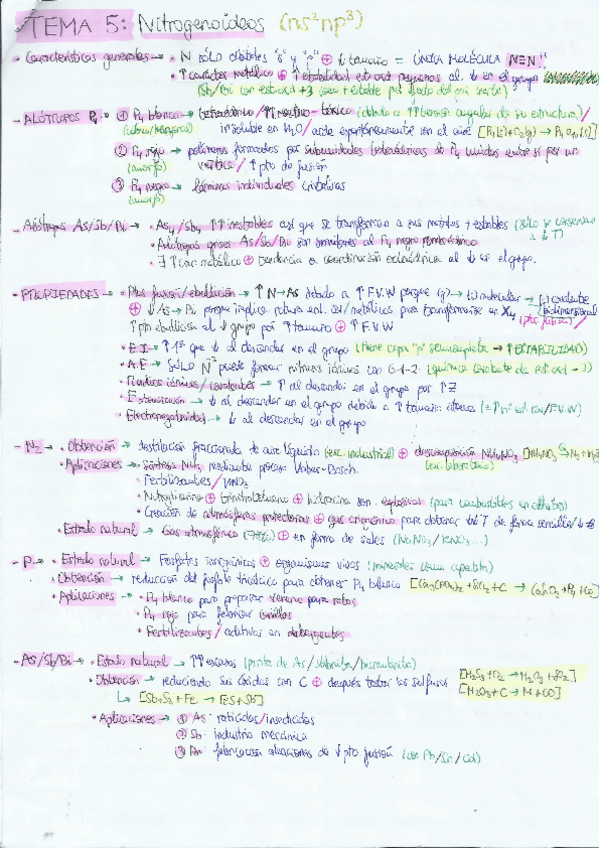 TEMA 5: Nitrogenoideos (ns²np³)
- Características generales → • N sólo orbitales "s" y "p" ⊕ ↓ tamaño = ÚNICA MOLÉCULA N≡N
• ↑ carácter metálico ⊕ ↑ estabilidad est. oxid pequeños al ↓ en el grupo
(Sb/Bi con est. oxid +3 más estable por efecto del par inerte)
- ALÓTROPOS P₄ • ① P₄ blanco → tetraédrico/ ↑↑ reactivo - tóxico (debido a ↑ tensión angular de su estructura)/
insoluble en H₂O/ arde espontáneamente en el aire
② P₄ rojo → polímeros formados por subunidades tetraédricas de P₄ unidas entre sí por un
(amorfo) vértice/ ↑ pto de fusión
③ P₄ negro → láminas individuales
- Alótropos As/Sb/Bi → • As₄/Sb₄ ↑↑ inestables así que se transforman a sus + estables
• Alótropos grises As/Sb/Bi son similares al P₄ negro romboédrico
• car. metálico ⊕ tendencia a coordinación octaédrica al ↓ en el grupo.
- PROPIEDADES → • Ptos fusión/ebullición → ↑ N→As debido a ↑ F.V.W porque molecular → covalente
⊕ ↓ As → Bi porque implica rotura enl. para transformarse en X₄ bidimensional
↑ pto ebullición al ↓ grupo por ↑ tamaño ⊕ ↑ F.V.W (ptos fusión)
• E.I → ↑ 1ª que ↓ al descender en el grupo (tiene capa "p" semicompleta → ↑ ESTABILIDAD)
• A.E → SÓLO N³⁻ puede formar nitruros iónicos con G.1-2
• Radios iónicos/covalentes → ↑ al descender en el grupo por ↑ Z
• → ↓ al descender en el grupo debido a ↑ tamaño
• Electronegatividad → ↓ al descender en el grupo
- N₂ → • Obtención → destilación fraccionada de aire líquido (esc. industrial) ⊕ descomposición NH₄NO₃
• Aplicaciones → • Síntesis NH₃ mediante proceso Haber-Bosch. (esc. laboratorio)
• Fertilizantes/ HNO₃
• Nitroglicerina ⊕ trinitrotolueno ⊕ hidracina son explosivos (para combustibles en cohetes)
• Creación de atmósferas protectoras ⊕ gas criogénico para obtener ↓↓ T de forma sencilla
• Estado natural → Gas atmosférico (78%) ⊕ en forma de sales (NaNO₃/KNO₃...)
- P → • Estado natural → Fosfatos inorgánicos ⊕ organismos vivos
• Obtención → reducción del fosfato tricálcico para obtener P₄ blanco
• Aplicaciones → • P₄ blanco para preparar veneno para ratas
• P₄ rojo para fabricar cerillas
• Fertilizantes/ aditivos en detergentes
- As/Sb/Bi → • Estado natural → ↑↑ escasos
• Obtención → reduciendo sus óxidos con C ⊕ después tostar los sulfuros [M₂S₃+O₂ → M₂O₃+SO₂]
↳ [Sb₂S₃ + Fe → FeS+Sb] [M₂O₃+C → M+CO]
• Aplicaciones → ① As: raticidas/insecticidas
② Sb: industria mecánica
③ Bi: fabricación aleaciones de ↓ pto fusión (con Pb/Sn/Cd)